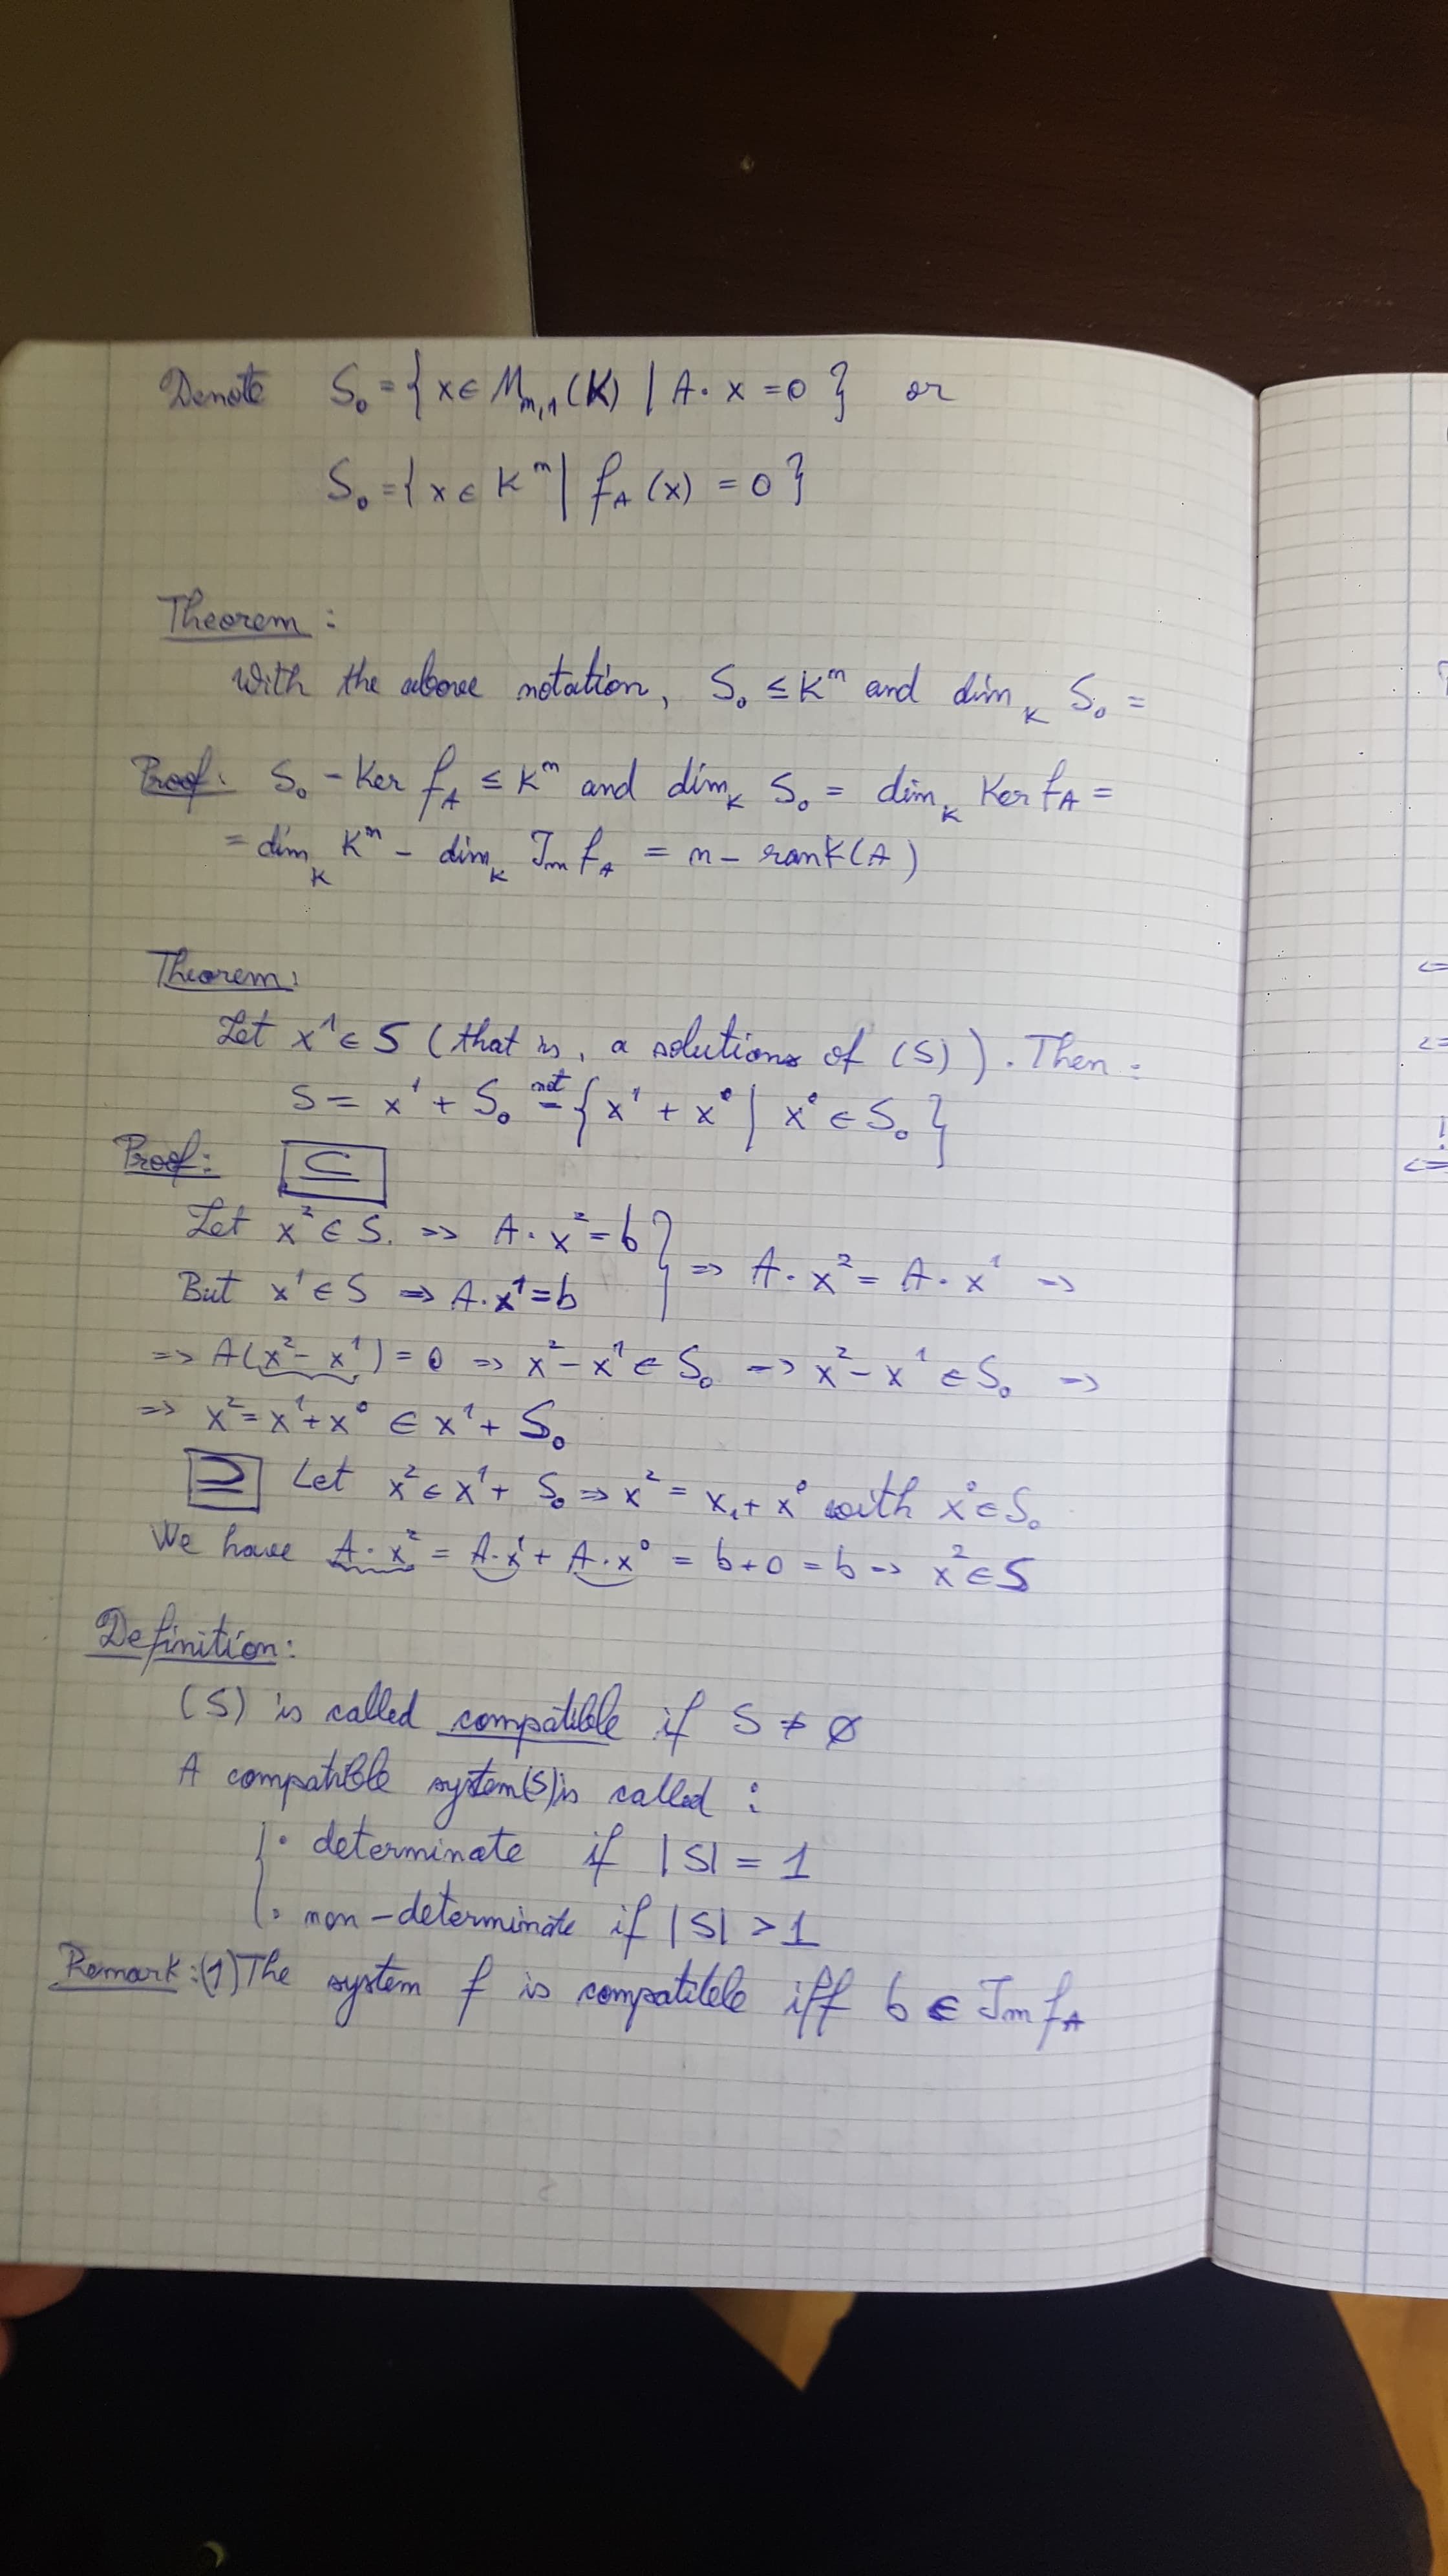 Denote S₀ = { x ∈ M_{n,1}(K) | A · x = 0 } or
S₀ = { x ∈ Kⁿ | f_A (x) = 0 }
Theorem :
With the above notation, S₀ ≤ Kⁿ and dim_K S₀ =
Proof: S₀ - Ker f_A ≤ Kⁿ and dim_K S₀ = dim_K Ker f_A =
= dim_K Kⁿ - dim_K Im f_A = n - rank(A)
Theorem:
Let x¹ ∈ S (that is, a solutions of (S)). Then :
S = x¹ + S₀ not= { x¹ + x⁰ | x⁰ ∈ S₀ }
Proof: ⊆
Let x² ∈ S. => A · x² = b } => A · x² = A · x¹ =>
But x¹ ∈ S => A · x¹ = b
=> A(x² - x¹) = 0 => x² - x¹ ∈ S₀ => x² - x¹ ∈ S₀ =>
=> x² = x¹ + x⁰ ∈ x¹ + S₀
⊇ Let x² ∈ x¹ + S₀ => x² = x₁ + x⁰ with x⁰ ∈ S₀
We have A · x² = A · x¹ + A · x⁰ = b + 0 = b => x² ∈ S
Definition:
(S) is called compatible if S ≠ ∅
A compatible system (S) is called :
· determinate if |S| = 1
· non-determinate if |S| > 1
Remark: (1) The system f is compatible iff b ∈ Im f_A